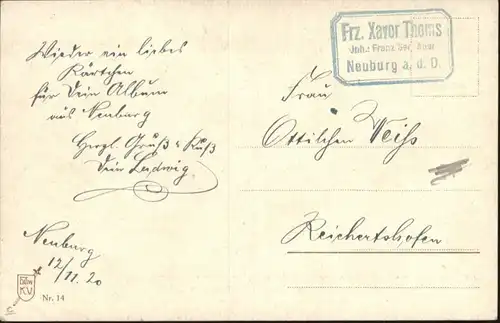 Wieder ein liebes
Kärtchen
für Dein Album
aus Neuburg
Herzl. Gruß & Kuß
Dein Ludwig.
Neuburg
12/11.20
Nr. 14
Frz. Xaver Thoms
Joh.: Franz
Neuburg a. d. D.
Frau
Ottilchen Weiß
Reichertshofen